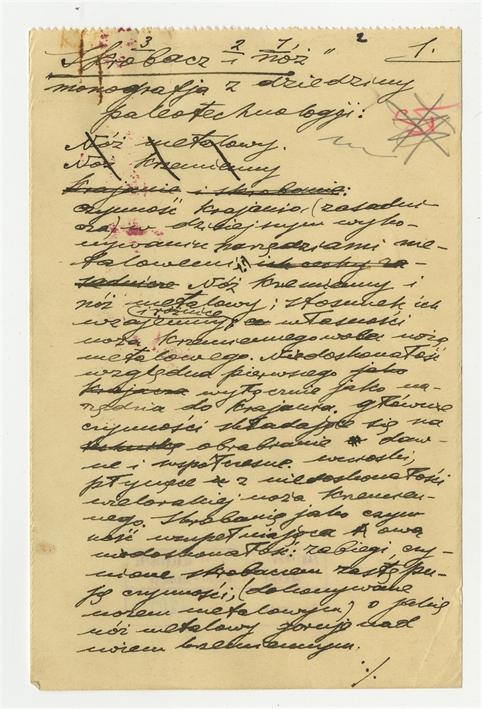 3 2 1 2 1.
"Skrobacz i nóż"
monografja z dziedziny
paleotechnologji:
Nóż metalowy.
Nóż krzemianny
krajania i skrobania:
czynność krajania, (zasadni-
cza) w dzisiejszym wyko-
nywaniu narzędziami me-
talowemi
Nóż krzemianny i
nóż metalowy; stosunek ich
wzajemny i różnice własności
noża krzemiennego noża
metalowego. Niedoskonałość
względna pierwszego jako
krajacza wyłącznie jako na-
rzędzia do krajania. główne
czynności składające się na
obrabianie daw-
ne i współczesne. wnioski,
płynące z niedoskonałości
noża krzemien-
nego. Skrobanie jako czyn-
ność uzupełniająca ową
niedoskonałość: zabiegi, czy-
nione skrobaczem zastępu-
ją czynności, (dokonywane
nożem metalowym) o jakie
nóż metalowy góruje nad
nożem krzemiennym.
./.